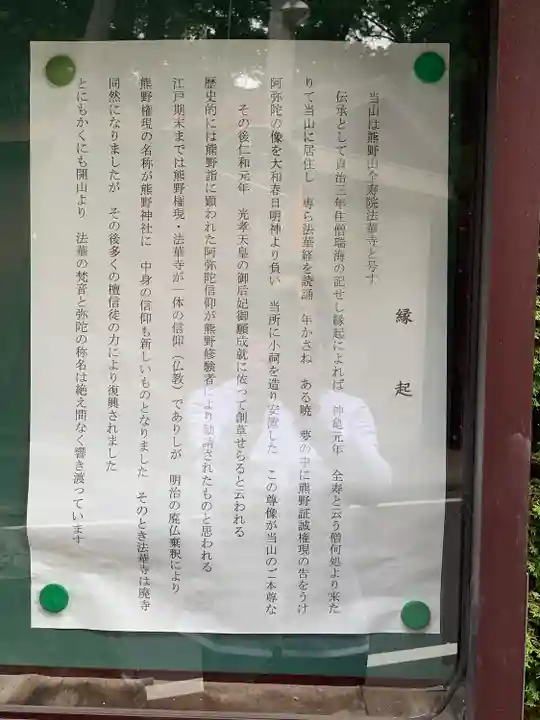 縁起
当山は熊野山全寿院法華寺と号す
伝承として貞治三年住僧瑞海の記せし縁起によれば 神亀元年 全寿と云う僧何処より来た
りて当山に居住し 専ら法華経を読誦 年かさね ある暁 夢の中に熊野証誠権現の告をうけ
阿弥陀の像を大和春日明神より負い 当所に小祠を造り安置した この尊像が当山のご本尊な
その後仁和元年 光孝天皇の御后妃御願成就に依って創草せらると云われる
歴史的には熊野詣に顕われた阿弥陀信仰が熊野修験者により勧請されたものと思われる
江戸期末までは熊野権現・法華寺が一体の信仰(仏教)でありしが 明治の廃仏棄釈により
熊野権現の名称が熊野神社に 中身の信仰も新しいものとなりました そのとき法華寺は廃寺
同然になりましたが その後多くの檀信徒の力により復興されました
とにもかくにも開山より 法華の梵音と弥陀の称名は絶え間なく響き渡っています